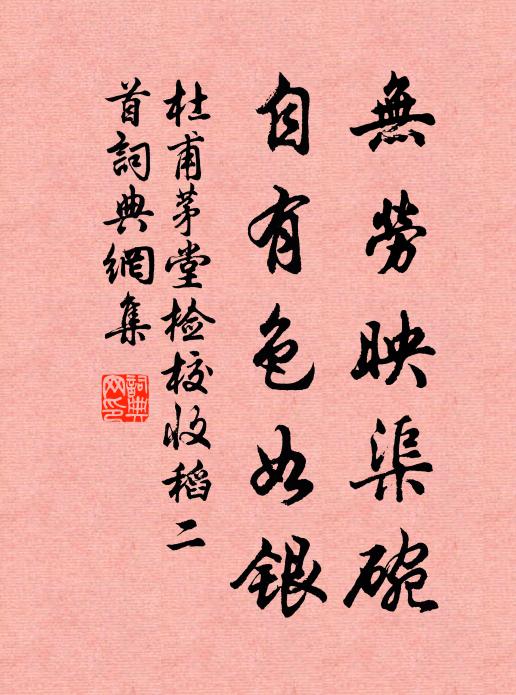 無勞映渠碗
自有色如銀
杜甫茅堂檢校收稻二
首詞典網集
詞典
网印